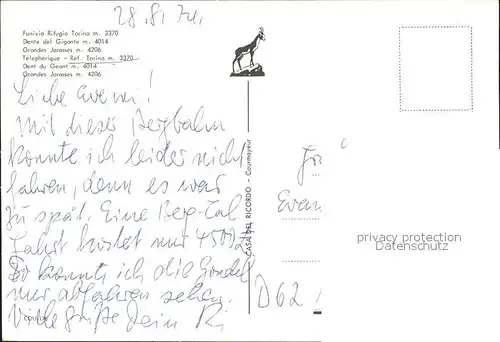 28.8.74.
Funivia Rifugio Torino m. 3370
Dente del Gigante m. 4014
Grandes Jorasses m. 4206
Téléphérique - Ref. Torino m. 3370
Dent du Géant m. 4014
Grandes Jorasses m. 4206
Liebe
Mit dieser Bergbahn
konnte ich leider nicht
fahren, denn es war
zu spät. Eine Berg-Tal
fahrt kostet nur 4500
So konnte ich die Gondel
nur abfahren sehen.
Viele Grüße Dein
CASA DEL RICORDO - Courmayeur
privacy protection
Datenschutz
D62